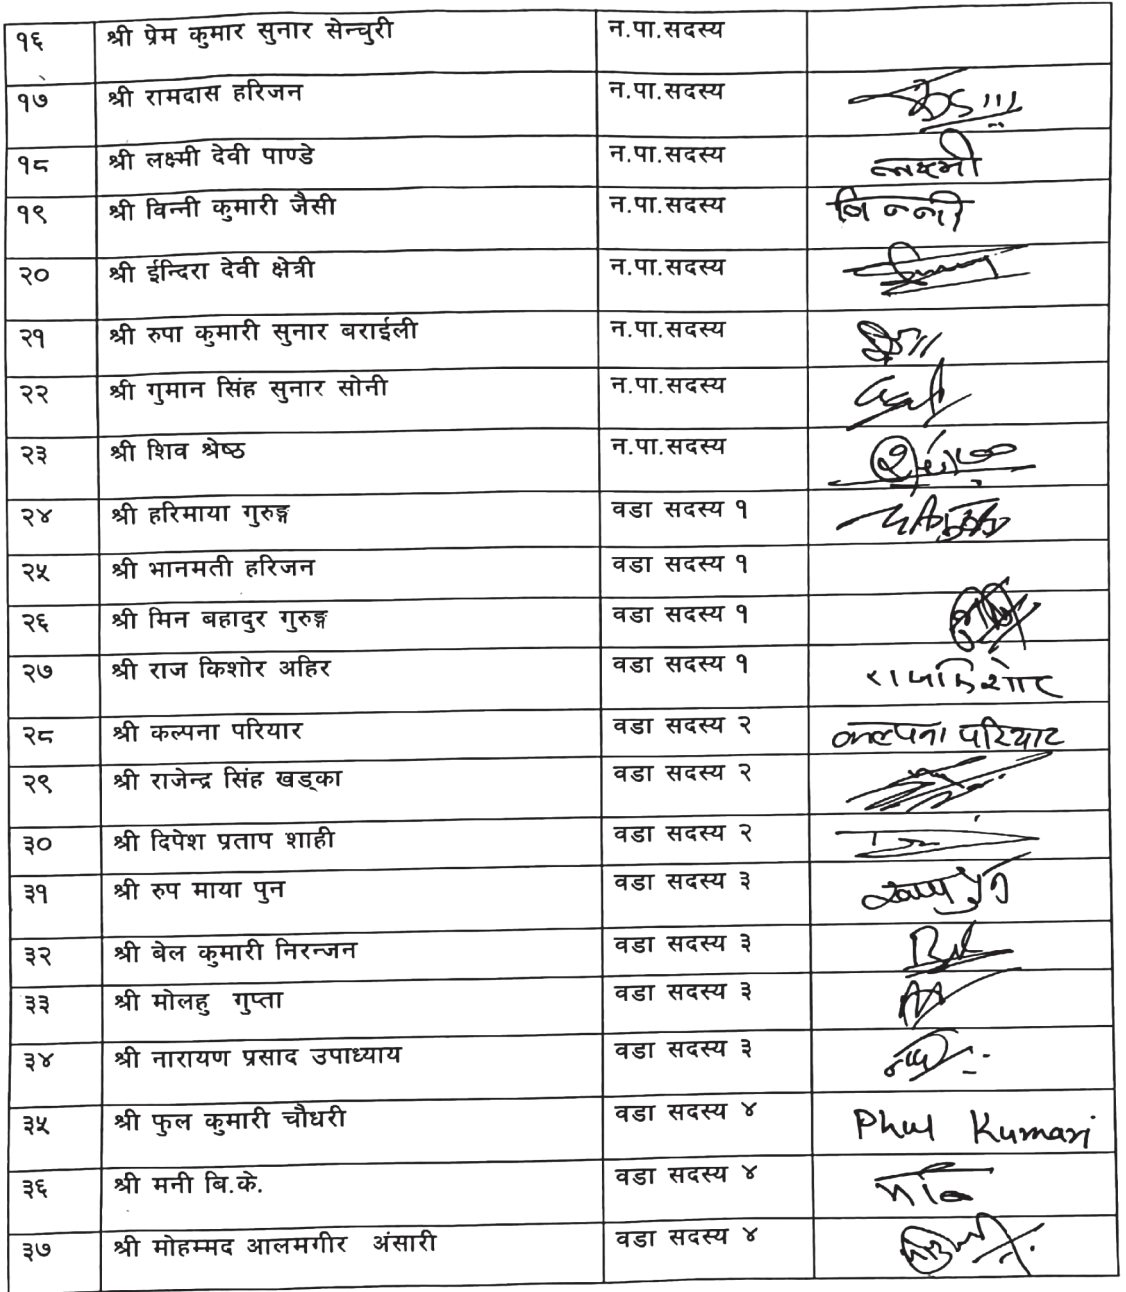 १६ श्री प्रेम कुमार सुनार सेन्चुरी न.पा.सदस्य
१७ श्री रामदास हरिजन न.पा.सदस्य
१८ श्री लक्ष्मी देवी पाण्डे न.पा.सदस्य लक्ष्मी
१९ श्री विन्नी कुमारी जैसी न.पा.सदस्य बिन्नी
२० श्री ईन्दिरा देवी क्षेत्री न.पा.सदस्य
२१ श्री रुपा कुमारी सुनार बराईली न.पा.सदस्य
२२ श्री गुमान सिंह सुनार सोनी न.पा.सदस्य
२३ श्री शिव श्रेष्ठ न.पा.सदस्य
२४ श्री हरिमाया गुरुङ्ग वडा सदस्य १
२५ श्री भानमती हरिजन वडा सदस्य १
२६ श्री मिन बहादुर गुरुङ्ग वडा सदस्य १
२७ श्री राज किशोर अहिर वडा सदस्य १ राजकिशोर
२८ श्री कल्पना परियार वडा सदस्य २ कल्पना परियार
२९ श्री राजेन्द्र सिंह खड्का वडा सदस्य २
३० श्री दिपेश प्रताप शाही वडा सदस्य २
३१ श्री रुप माया पुन वडा सदस्य ३
३२ श्री बेल कुमारी निरन्जन वडा सदस्य ३
३३ श्री मोलहु गुप्ता वडा सदस्य ३
३४ श्री नारायण प्रसाद उपाध्याय वडा सदस्य ३
३५ श्री फुल कुमारी चौधरी वडा सदस्य ४ Phul Kumari
३६ श्री मनी बि.के. वडा सदस्य ४
३७ श्री मोहम्मद आलमगीर अंसारी वडा सदस्य ४